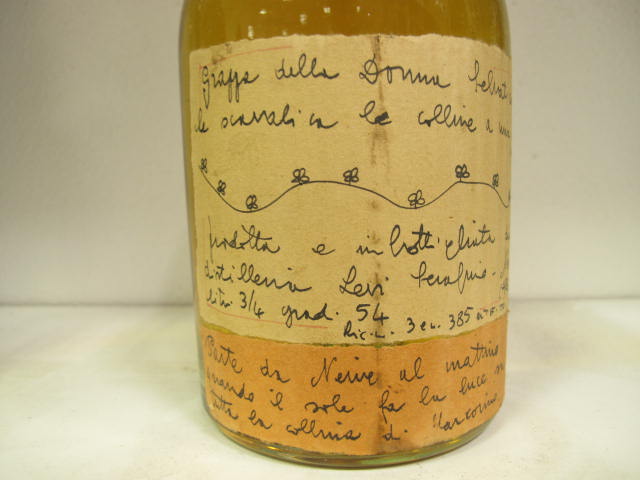 Grappa della Donna selvati
che scavalica le colline a una
prodotta e imbottigliata
distilleria Levi Serafino
litri 3/4 grad. 54
Ric. L. 3 en. 385
Parte da Neive al mattino
quando il sole fa la luce su
tutta la collina di Marcorino